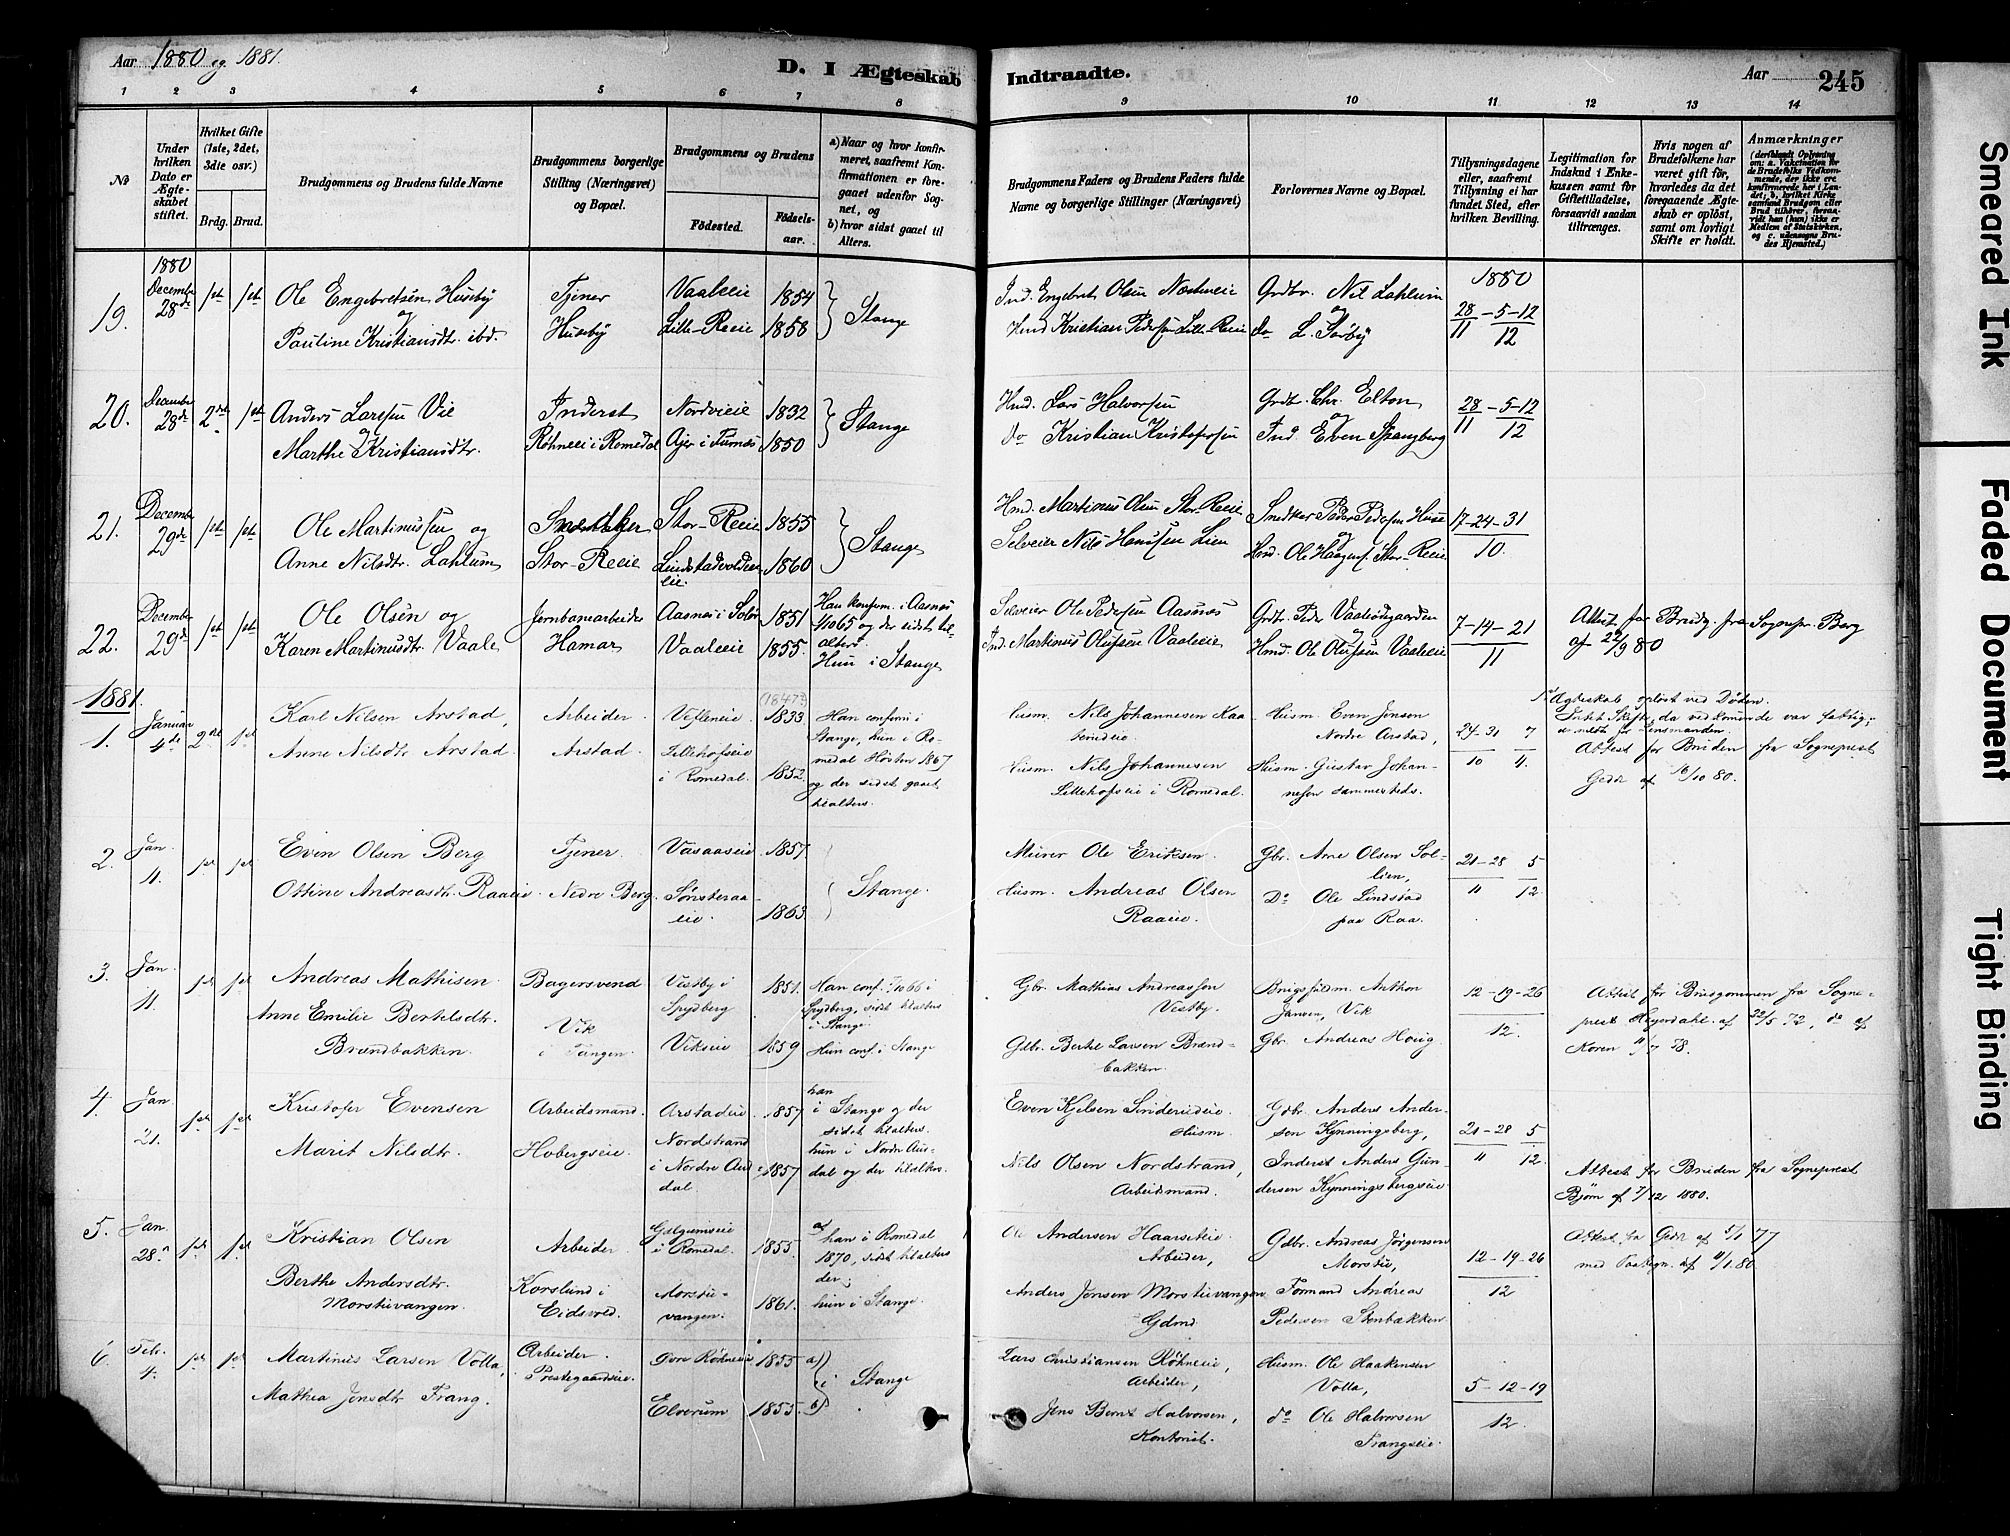 Aar 1880 og 1881.
D. I Ægteskab Indtraadte.
Aar 245
1 2 3 4 5 6 7 8 9 10 11 12 13 14
No
Under hvilken Dato er Ægteskabet stiftet.
Hvilket Gifte (1ste, 2det, 3die osv.)
Brdg. Brud.
Brudgommens og Brudens fulde Navne
Brudgommens borgerlige Stilling (Næringsvei) og Bopæl.
Brudgommens og Brudens
Födested. Födselsaar.
a) Naar og hvor konfirmeret, saafremt Konfirmationen er foregaaet udenfor Sognet, og
b) hvor sidst gaaet til Alters.
Brudgommens Faders og Brudens Faders fulde Navne og borgerlige Stillinger (Næringsvei)
Forlovernes Navne og Bopæl.
Tillysningsdagene eller, saafremt Tillysning ei har fundet Sted, efter hvilken Bevilling.
Legitimation for Indskud i Enkekassen samt for Giftetilladelse, forsaavidt saadan tiltrænges.
Hvis nogen af Brudefolkene har været gift för, hvorledes da det foregaaende Ægteskab er oplöst, samt om lovligt Skifte er holdt.
Anmærkninger (deriblandt Oplysning om: a. Vakcination for de Brudefolks Vedkommende, der ikke ere konfirmerede her i Landet; b. hvilket Kirkesamfund Brudgom eller Brud tilhörer, forsaavidt han (hun) ikke er Medlem af Statskirken, og c. udensogns Brudes Hjemsted.)
19. 1880 December 28de 1ste 1ste Ole Engebretsen Huseby og Tjener Vaaleeie 1854 Stange Ind. Engebret Olsen Grdbr. Nil Lahlum og 1880 28/11 - 5-12/12
Pauline Kristiansdtr. ibd. Huseby Lille-Reeie 1858 Hmd Kristian Pedersen Lille-Reeie do L. Sörby
20. December 28de 2det 1ste Anders Larssen Vie og Inderst Nordvieie 1832 Stange Hmd. Lars Halvorsen Grdbr. Chr. Elton og 28/11 - 5-12/12
Marthe Kristiansdtr. Röhneeie i Romedal Ajer i Furnes 1850 do Kristian Kristofersen Ind. Even Spangberg
21. December 29de 1ste 1ste Ole Martinussen og Snedker Stor-Reeie 1855 Stange Hmd. Martinus Olsen Stor-Reeie Snedker Peder Pedersen Huse og 17-24-31/10.
Anne Nilsdtr. Lahlum Stor-Reeie Lindstadvolden eie. 1860 Selveier Nils Hanssen Lien Hmd. Ole Haagens. Stor-Reeie
22. December 29de 1ste 1ste Ole Olsen og Jernbanearbeider Aasnes i Solör 1851 Han konfirm. i Aasnes og der sidst til alters. Selveier Ole Pedersen Aasnæs Grdbr. Peder Vaalsödegaarden og 7-14-21/11 Attest for Brudg. fra Sognepr. Berg af 22/9 80
Karen Martinusdtr. Vaale Hamar Vaaleeie 1855. Hun i Stange Ind. Martinus Olufsen Vaaleeie Hmd. Ole Olufsen Vaaleeie
1881.
1. Januar 4de 2det 1ste Karl Nilsen Arstad, Arbeider. (1847?) 1833 Han confirm i Stange, hun i Romedal Hösten 1867 og der sidst gaaet tilalters. Husm. Nils Johannesen Husm. Even Jensen Nordre Arstad, 24-31/10 7/4. 1ste Ægteskab oplöst ved Döden. Intet Skifte, da vedkomende var fattig, Lensmanden.
Anne Nilsdtr Arstad. Arstad. Lillehofseie i Romedal. 1852. Husm. Nils Johannesen Lillehofseie i Romedal. Husm. Gustav Johannesen sammesteds. Attest for Bruden fra Sogneprest Gedz af 16/10 80.
2. Jan. 4. 1ste 1ste Even Olsen Berg Tjener. Vasaaseie 1857. Stange. Murer Ole Eriksen. Gbr. Arne Olsen Sollien, 21-28/11 5/12.
Ottine Andreasdtr. Raaeie. Nedre Berg. Sönsteraaeie. 1863. Husm. Andreas Olsen Raaeie. Do Ole Lindstad paa Raa.
3. Jan. 11. 1ste 1ste Andreas Mathisen. Bagersvend Vestby i Spydberg 1851. Han conf. 7/10 66 i Spydberg, sidst tilalters i Stange. Gbr. Mathias Andreassen Vestby. Anthon Jansen, Vik 12-19-26/12. Attest for Brudgommen fra Sogneprest Heyerdahl. af 22/5 72, do af Koren 11/7 78.
Anne Emilie Bertelsdtr. Brændbakken. Vik i Tangen. Vikseie 1859 Hun conf. i Stange Gdbr. Bertel Larsen Brændbakken. Gbr. Andreas Houg.
4. Jan 21. 1ste 1ste Kristofer Evensen Arbeidsmand. Arstadeie 1857 han i Stange og der sidst tilalters. Even Kjelsen Sinderudeie. Husm. Gdbr. Anders Andersen Kynningsberg, 21-28/11 5/12.
Marit Nilsdtr. Hobergseie. Nordstrand i Nordre Aurdal. 1857 hun i Nordre Aurdal og der tilalters. Nils Olsen Nordstrand, Arbeidsmand. Inderst Anders Gundersen Kynningsbergseie. Attest for Bruden fra Sogneprest Bjørn af 7/12 1880.
5. Jan. 28de 1ste 1ste Kristian Olsen Arbeider. i Romedal. 1855. a) han i Romedal 1870, sidst tilalters der; Ole Andersen Haarseteie Arbeider, Gdbr. Andreas Jørgensen Morstu, 12-19-26/12 Attest fra Gedz af 5/1 77 med Paategn. af 11/1.80.
Berthe Andersdtr. Morstuvangen. Korslund i Eidsvold. Morstuvangen. 1861. hun i Stange. Anders Jensen Morstuvangen Gdmd. Formand Andreas Pedersen Stenbækken.
6. Febr. 4. 1ste 1ste Martinus Larsen Volla, Arbeider. Prestegaardseie. Övre Röhneeie 1855 a) i Stange Lars Christiansen Röhneeie, Arbeider, Husm. Ole Haakensen Volla, 5-12-19/12.
Mathea Jensdtr Frang. Elverum 1855. b) Jens Bernt Halvorsen, Kontorist. do Ole Halvorsen Frangseie.
Smeared Ink
Faded Document
Tight Binding